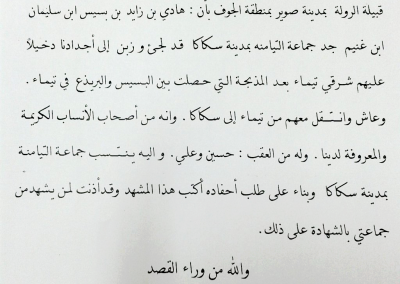 قبيلة الرولة بمدينة صوير بمنطقة الجوف بأن : هادي بن زايد بن بسيس ابن سليمان
ابن غنيم جد جماعة التيامنه بمدينة سكاكا قد لجئ و زبن إلى أجدادنا دخيلاً
عليهم شرقي تيماء بعد المذبحة التي حصلت بين البسيس والبريذع في تيماء .
وعاش وانتقل معهم من تيماء إلى سكاكا . وانه من أصحاب الأنساب الكريمة
والمعروفة لدينا . وله من العقب : حسين وعلي . و اليه ينتسب جماعة التيامنة
بمدينة سكاكا وبناء على طلب أحفاده أكتب هذا المشهد وقد أذنت لمن يشهد من
جماعتي بالشهادة على ذلك .
والله من وراء القصد